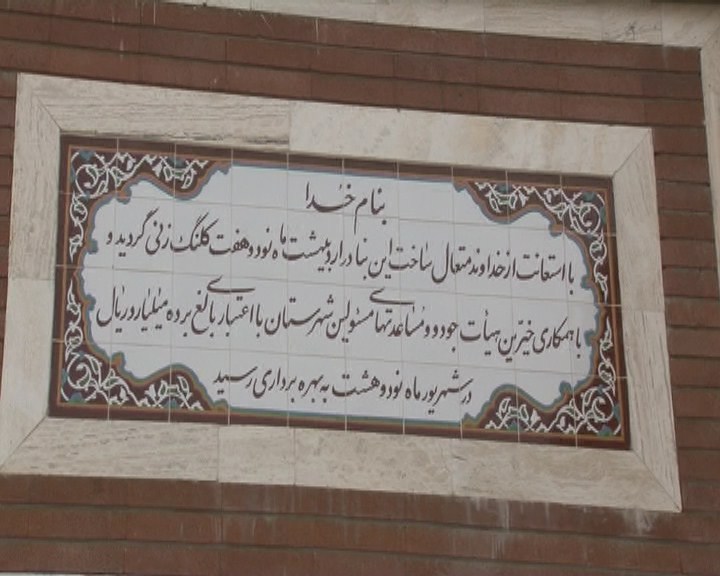 بنام خدا
با استعانت از خداوند متعال ساخت این بنا در اردیبهشت ماه نود و هفت کلنگ زنی گردید و
با همکاری خیرین هیأت جود و مساعدتهای مسئولین شهرستان با اعتباری بالغ بر ده میلیارد ریال
در شهریور ماه نود و هشت به بهره برداری رسید